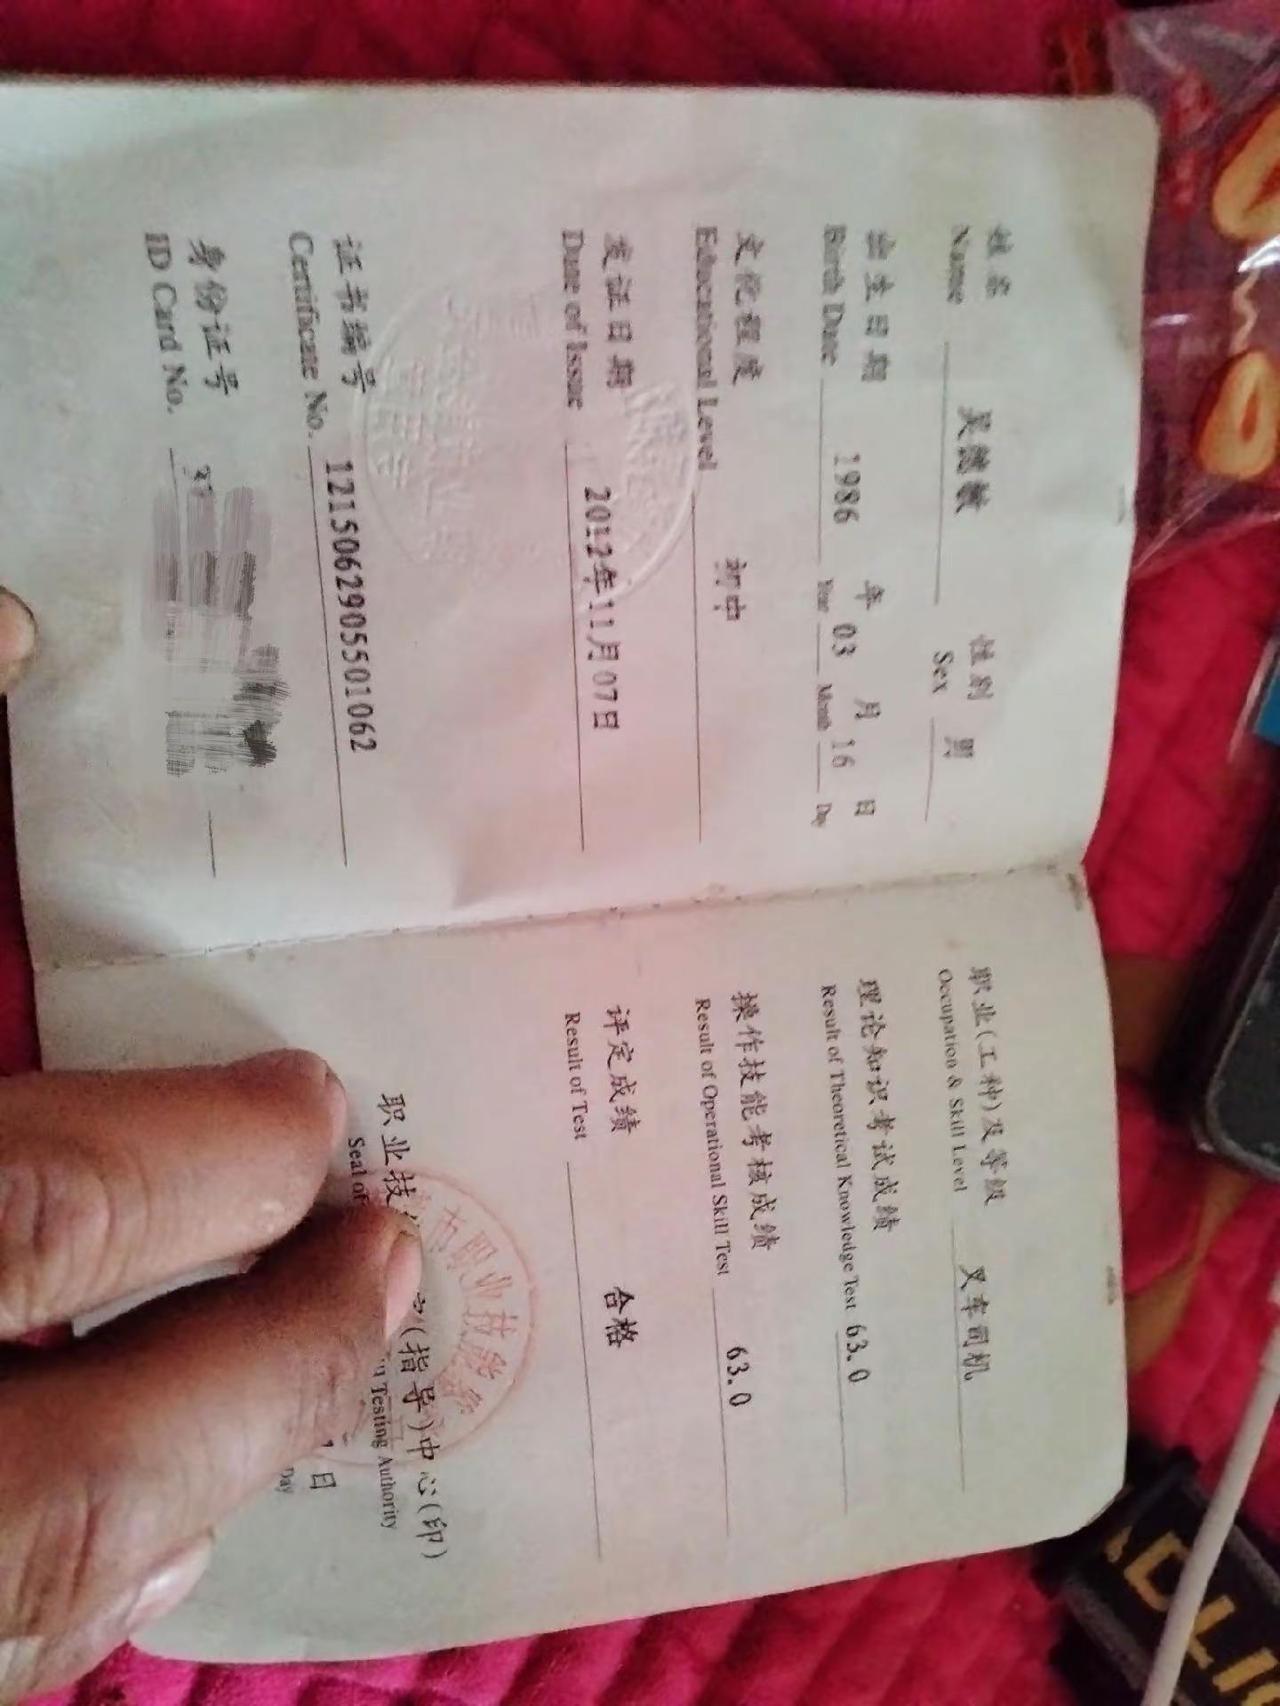 姓名 吴继敏 性别 男
Name Sex
出生日期 1986 年 03 月 16 日
Birth Date Year Month Day
文化程度 初中
Educational Level
发证日期 2012年11月07日
Date of Issue
证书编号 1215062905501062
Certificate No.
身份证号
ID Card No.
职业(工种)及等级 叉车司机
Occupation & Skill Level
理论知识考试成绩 63.0
Result of Theoretical Knowledge Test
操作技能考核成绩 63.0
Result of Operational Skill Test
评定成绩 合格
Result of Test
职业技 (指导)中心(印)
Seal of Testing Authority
市职业技能
日
Day